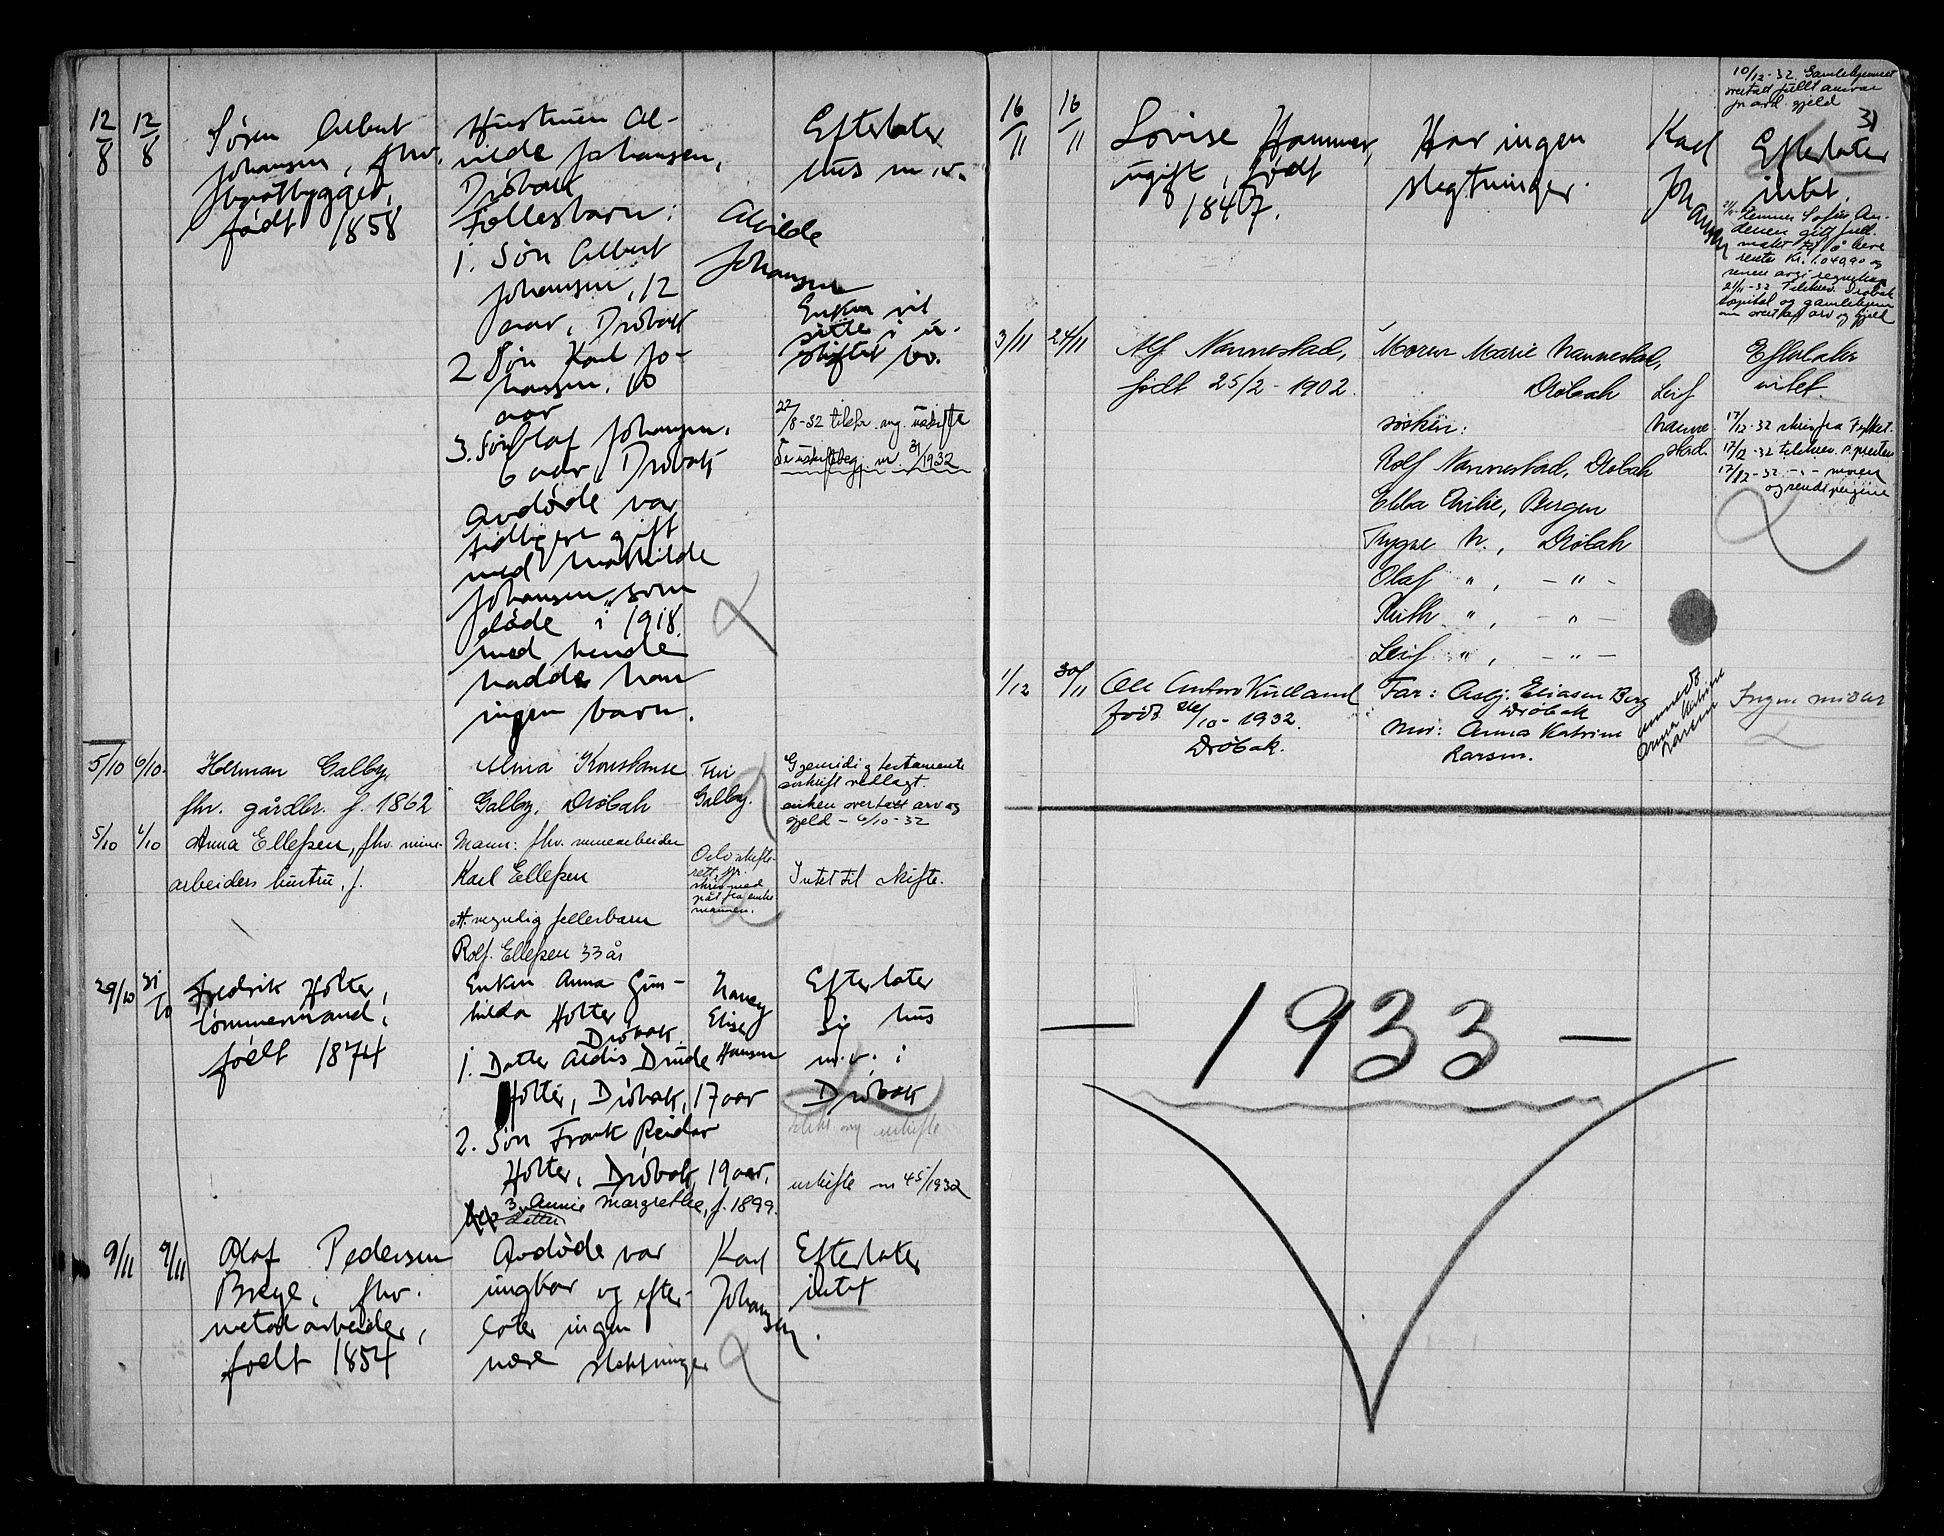 12/8 12/8
Søren Albert
Johansen, fhv.
født 1858
Hustruen Al-
vilde Johansen,
Drøbak
Fellesbarn:
1. Søn Albert
Johansen, 12
aar, Drøbak
2 Søn Karl Jo-
hansen, 10
aar
3. Søn Olaf Johansen,
6 aar, Drøbak
Avdøde var
tidligere gift
med Mathilde
Johansen, som
døde i 1918.
med hende
hadde han
ingen barn.
Alvilde
Johansen
Efterlater
hus m.v.
Enken vil
sitte i u-
skiftet bo.
22/8-32 telefr. ang. uskifte
Se uskiftebeg. nr 31/1932
5/10 6/10.
Herman Galby,
fhv. gårdbr. f. 1862
Alma Konstanse
Galby, Drøbak
Galby.
Gjensidig testamente
avskrift vedlagt.
enken overtatt arv og
gjeld – 6/10-32
5/10 6/10
Anna Ellefsen, fhv. mine-
arbeiders hustru, f.
Mann: fhv. minearbeider
Karl Ellefsen
et myndig fellesbarn
Rolf Ellefsen 33 år
Oslo skifte-
rett
mannen.
Intet til skifte.
29/10 31/10
Fredrik Holter,
tømmermand,
født 1874
Enken Anna Gun-
hilda Holter
Drøbak
1. Datter Aldis Drude
Holter, Drøbak, 17 aar
2. Søn Frank Reidar
Holter, Drøbak, 19 aar.
3. Annie Margrethe, f. 1899.
datter
Nancy
Elise
Hansen
Efterlater
sig hus
m.v. i
Drøbak
uskifte nr 45/1932
9/11 9/11
Olaf Pedersen
Brege, fhv.
metalarbeider,
født 1854
Avdøde var
ungkar og efter-
later ingen
nære slektninger
Karl
Johansen
Efterlater
intet.
31
10/12-32. Gamlehjemmet
overtatt fullt ansvar
for arv og gjeld
16/11 16/11
Lovise Hammer,
ugift, født
1847.
Har ingen
slegtninger.
Karl
Johansen
Efterlater
intet.
21/11-32 Tilskrev. Drøbak
hospital og gamlehjem
om overtatt arv og gjeld
3/11 24/11
Alf Nannestad,
født 25/2-1902.
Moren Marie Nannestad,
Drøbak
søsken:
Rolf Nannestad, Drøbak
Ebba Emilie, Bergen
Trygve N., Drøbak
Olaf " , – " –
Ruth " , – " –
Leif " , – " –
Leif
Nanne-
stad.
Efterlater
intet.
17/12-32 skriv fra Fylket.
17/12-32 tilskrev. s. presten
17/12-32 – " – moren
og sendt pengene
1/12 30/11
født 26/10-1932.
Drøbak.
Far: Asbj. Eliasen Berg
Drøbak
Mor: Anna Katrine
Larsen.
Anna Katrine
Larsen
Ingen midler
— 1933 —